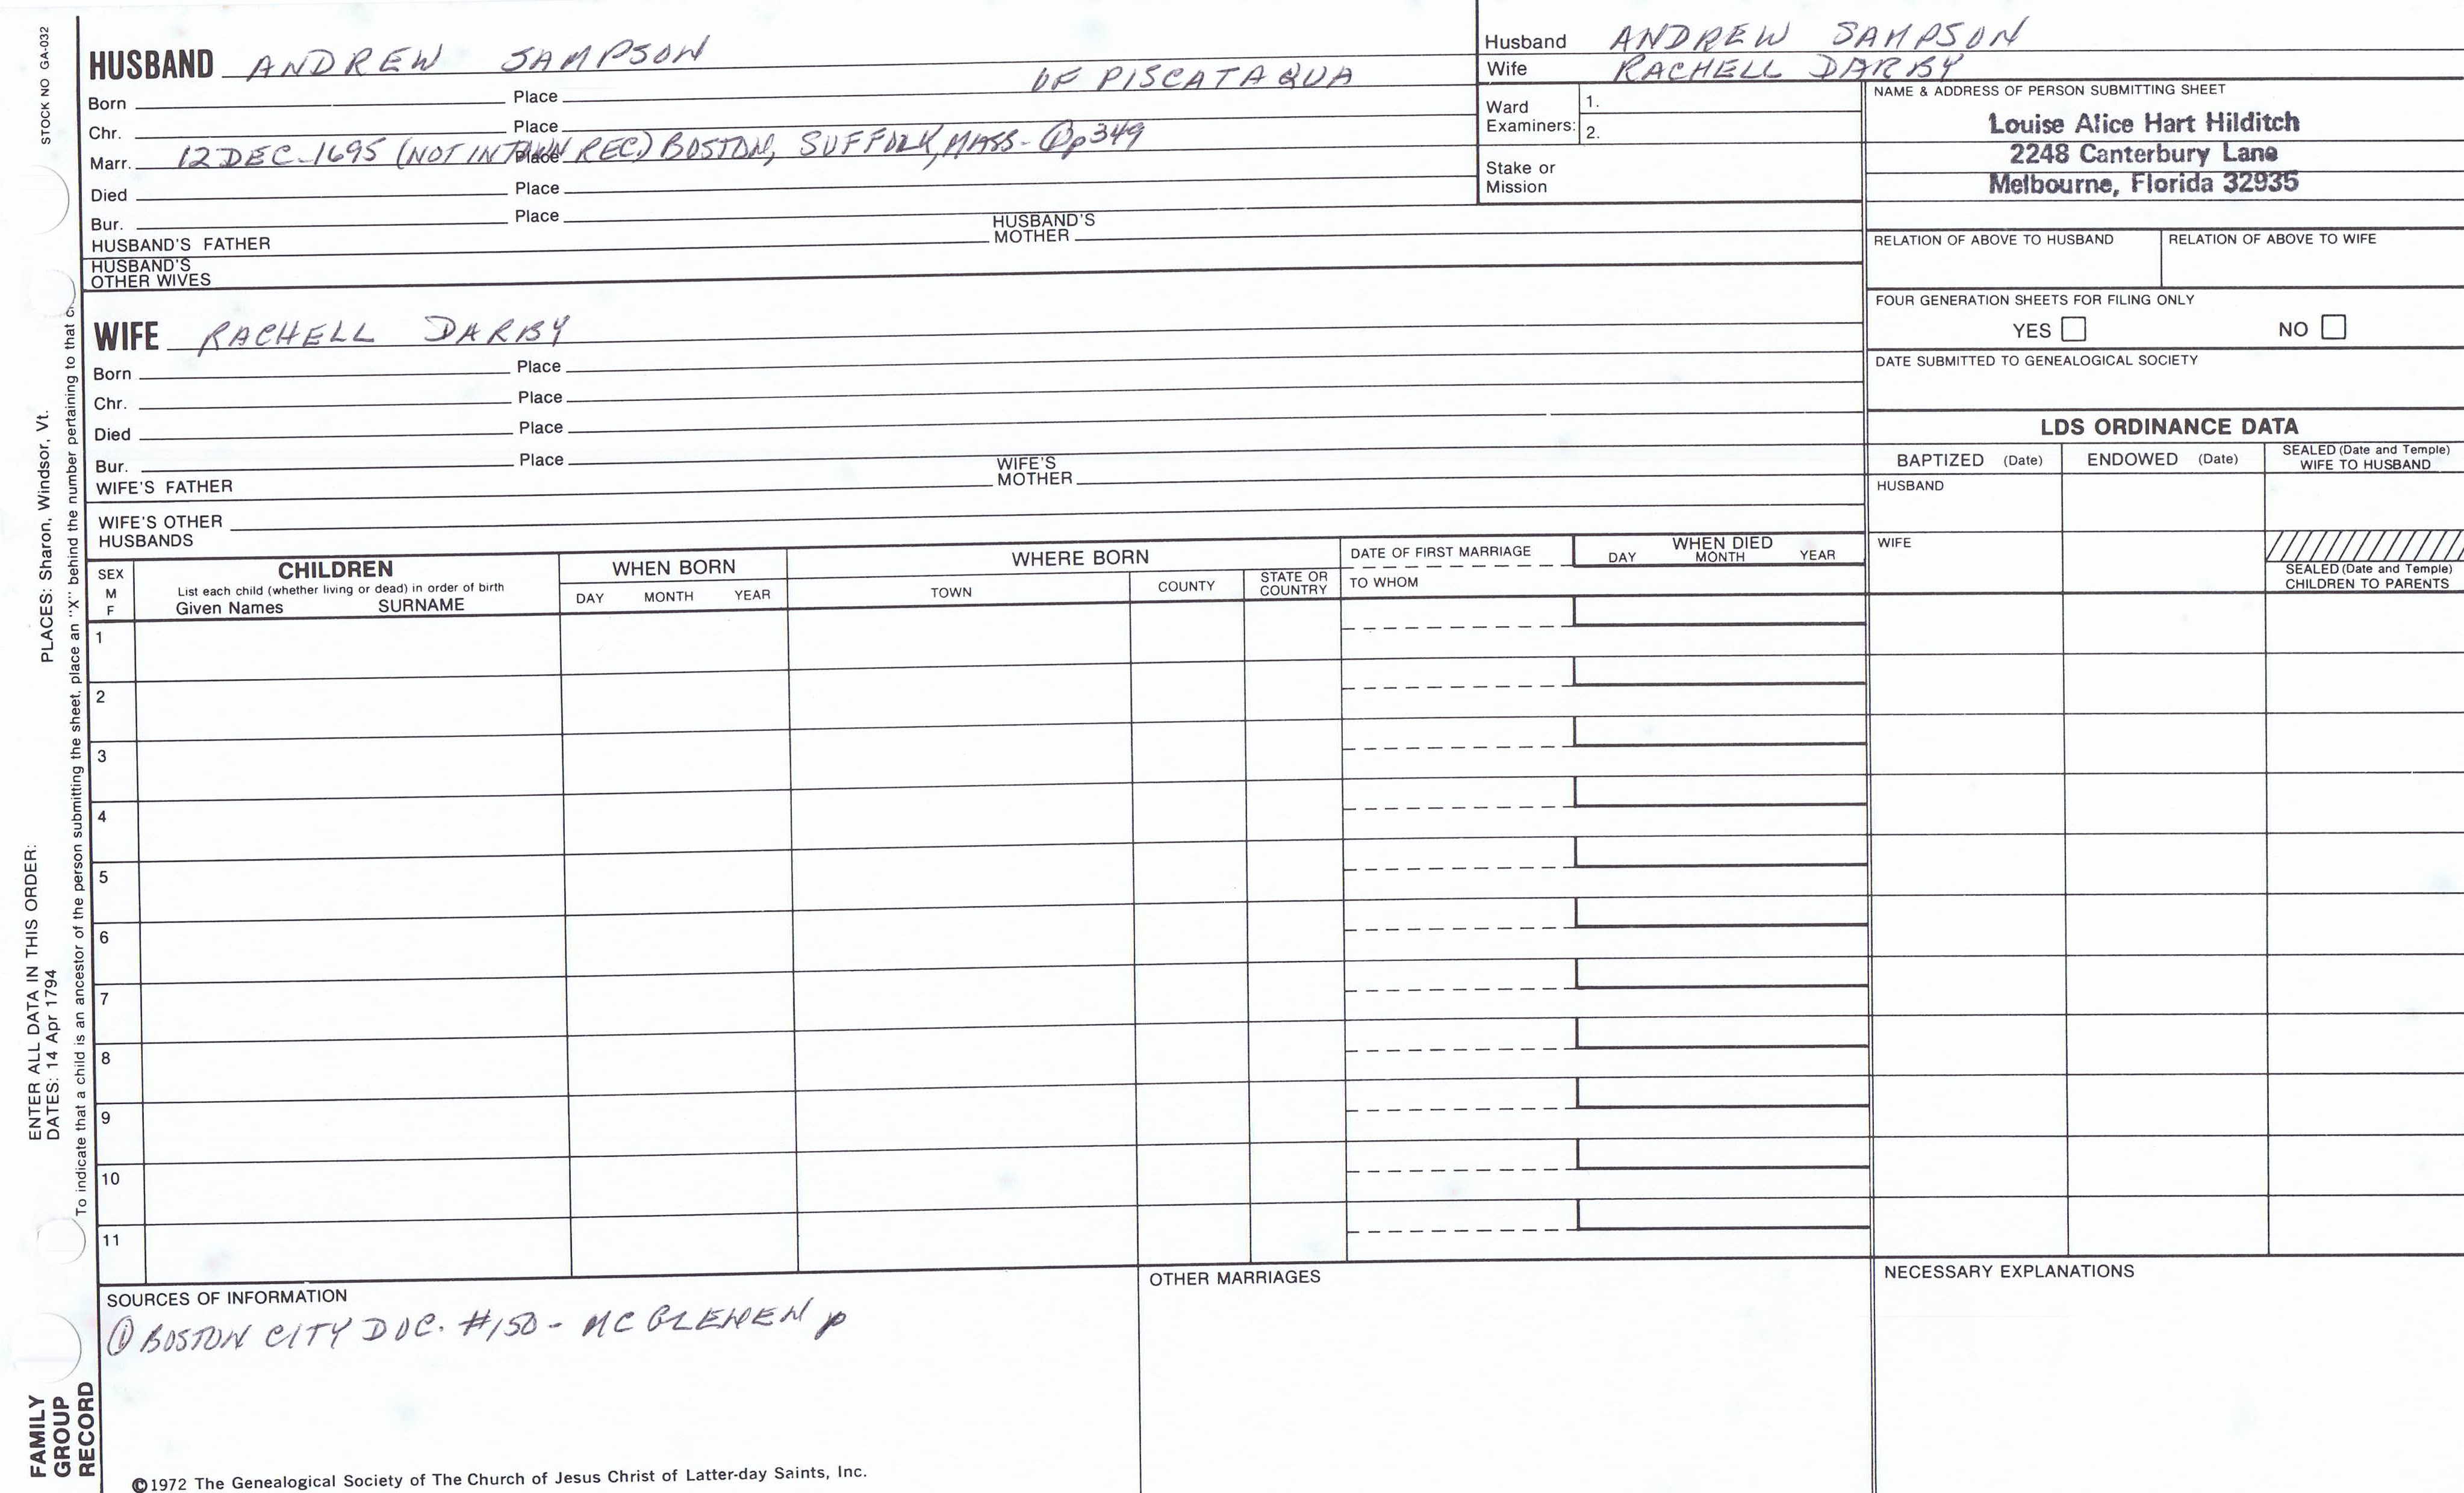 STOCK NO GA-032
PLACES: Sharon, Windsor, Vt.
ENTER ALL DATA IN THIS ORDER:
DATES: 14 Apr 1794
To indicate that a child is an ancestor of the person submitting the sheet, place an "X" behind the number pertaining to that
FAMILY
GROUP
RECORD
HUSBAND ANDREW SAMPSON
OF PISCATAQUA
Born Place
Chr. Place
Marr. 12 DEC 1695 (NOT IN TOWN REC) BOSTON, SUFFOLK, MASS - ① p349
Place
Died Place
Bur. Place
HUSBAND'S FATHER HUSBAND'S MOTHER
HUSBAND'S
OTHER WIVES
WIFE RACHELL DARBY
Born Place
Chr. Place
Died Place
Bur. Place
WIFE'S FATHER WIFE'S MOTHER
WIFE'S OTHER
HUSBANDS
Husband ANDREW SAMPSON
Wife RACHELL DARBY
Ward
Examiners:
1.
2.
Stake or
Mission
NAME & ADDRESS OF PERSON SUBMITTING SHEET
Louise Alice Hart Hilditch
2248 Canterbury Lane
Melbourne, Florida 32935
RELATION OF ABOVE TO HUSBAND RELATION OF ABOVE TO WIFE
FOUR GENERATION SHEETS FOR FILING ONLY
YES NO
DATE SUBMITTED TO GENEALOGICAL SOCIETY
LDS ORDINANCE DATA
BAPTIZED (Date) ENDOWED (Date) SEALED (Date and Temple)
WIFE TO HUSBAND
HUSBAND
WIFE
SEALED (Date and Temple)
CHILDREN TO PARENTS
SEX
M
F
CHILDREN
List each child (whether living or dead) in order of birth
Given Names SURNAME
WHEN BORN
DAY MONTH YEAR
WHERE BORN
TOWN COUNTY STATE OR
COUNTRY
DATE OF FIRST MARRIAGE
TO WHOM
WHEN DIED
DAY MONTH YEAR
1
2
3
4
5
6
7
8
9
10
11
SOURCES OF INFORMATION
① BOSTON CITY DOC. #150 - MC GLENEN p
OTHER MARRIAGES
NECESSARY EXPLANATIONS
©1972 The Genealogical Society of The Church of Jesus Christ of Latter-day Saints, Inc.